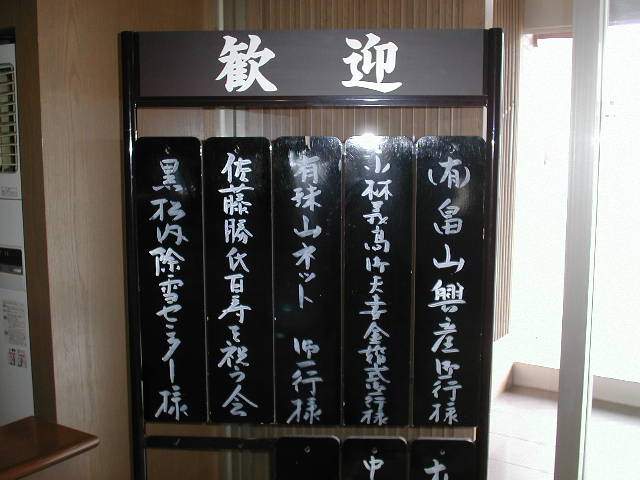 歓迎
(有)畠山興産御一行様
小林義高御夫妻金婚式御一行様
有珠山ネット 御一行様
佐藤勝氏百寿を祝う会
黒松内除雪センター様
中